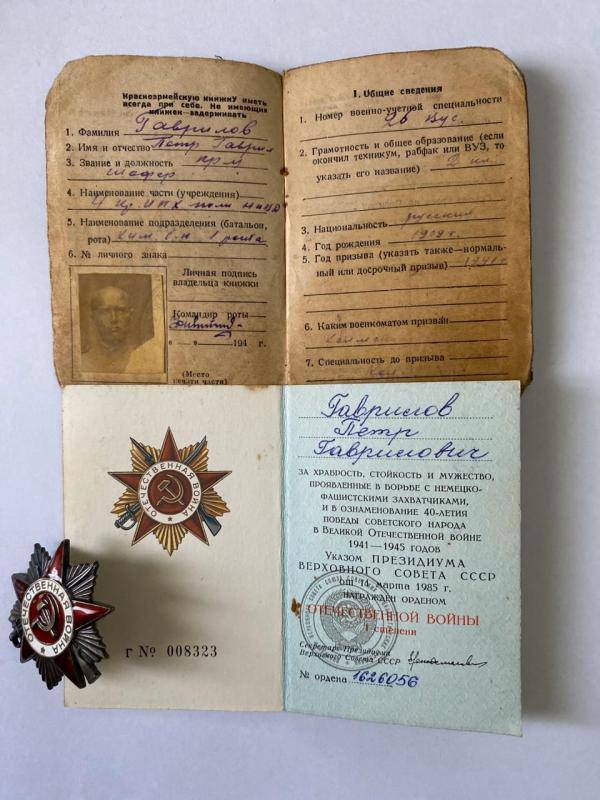 Красноармейскую книжку иметь
всегда при себе. Не имеющих
книжек — задерживать
1. Фамилия Гаврилов
2. Имя и отчество Петр Гаврил
3. Звание и должность
шофер
4. Наименование части (учреждения)
5. Наименование подразделения (батальон,
рота) хим. 1 рота
6. № личного знака
Личная подпись
владельца книжки
Командир роты
" " 194 г.
(Место
печати части)
I. Общие сведения
1. Номер военно-учетной специальности
26 Вус.
2. Грамотность и общее образование (если
окончил техникум, рабфак или ВУЗ, то
указать его название) 2 кл.
3. Национальность русский
4. Год рождения 1909 г.
5. Год призыва (указать также—нормаль-
ный или досрочный призыв) 1941 г.
6. Каким военкоматом призван
7. Специальность до призыва
Гаврилов
Петр
Гаврилович
ЗА ХРАБРОСТЬ, СТОЙКОСТЬ И МУЖЕСТВО,
ПРОЯВЛЕННЫЕ В БОРЬБЕ С НЕМЕЦКО-
ФАШИСТСКИМИ ЗАХВАТЧИКАМИ,
И В ОЗНАМЕНОВАНИЕ 40-ЛЕТИЯ
ПОБЕДЫ СОВЕТСКОГО НАРОДА
В ВЕЛИКОЙ ОТЕЧЕСТВЕННОЙ ВОЙНЕ
1941—1945 ГОДОВ
Указом ПРЕЗИДИУМА
ВЕРХОВНОГО СОВЕТА СССР
от 11 марта 1985 г.
НАГРАЖДЕН ОРДЕНОМ
ОТЕЧЕСТВЕННОЙ ВОЙНЫ
I степени
Секретарь Президиума
Верховного Совета СССР
№ ордена 1626056
ОТЕЧЕСТВЕННАЯ ВОЙНА
Г № 008323
ОТЕЧЕСТВЕННАЯ ВОЙНА